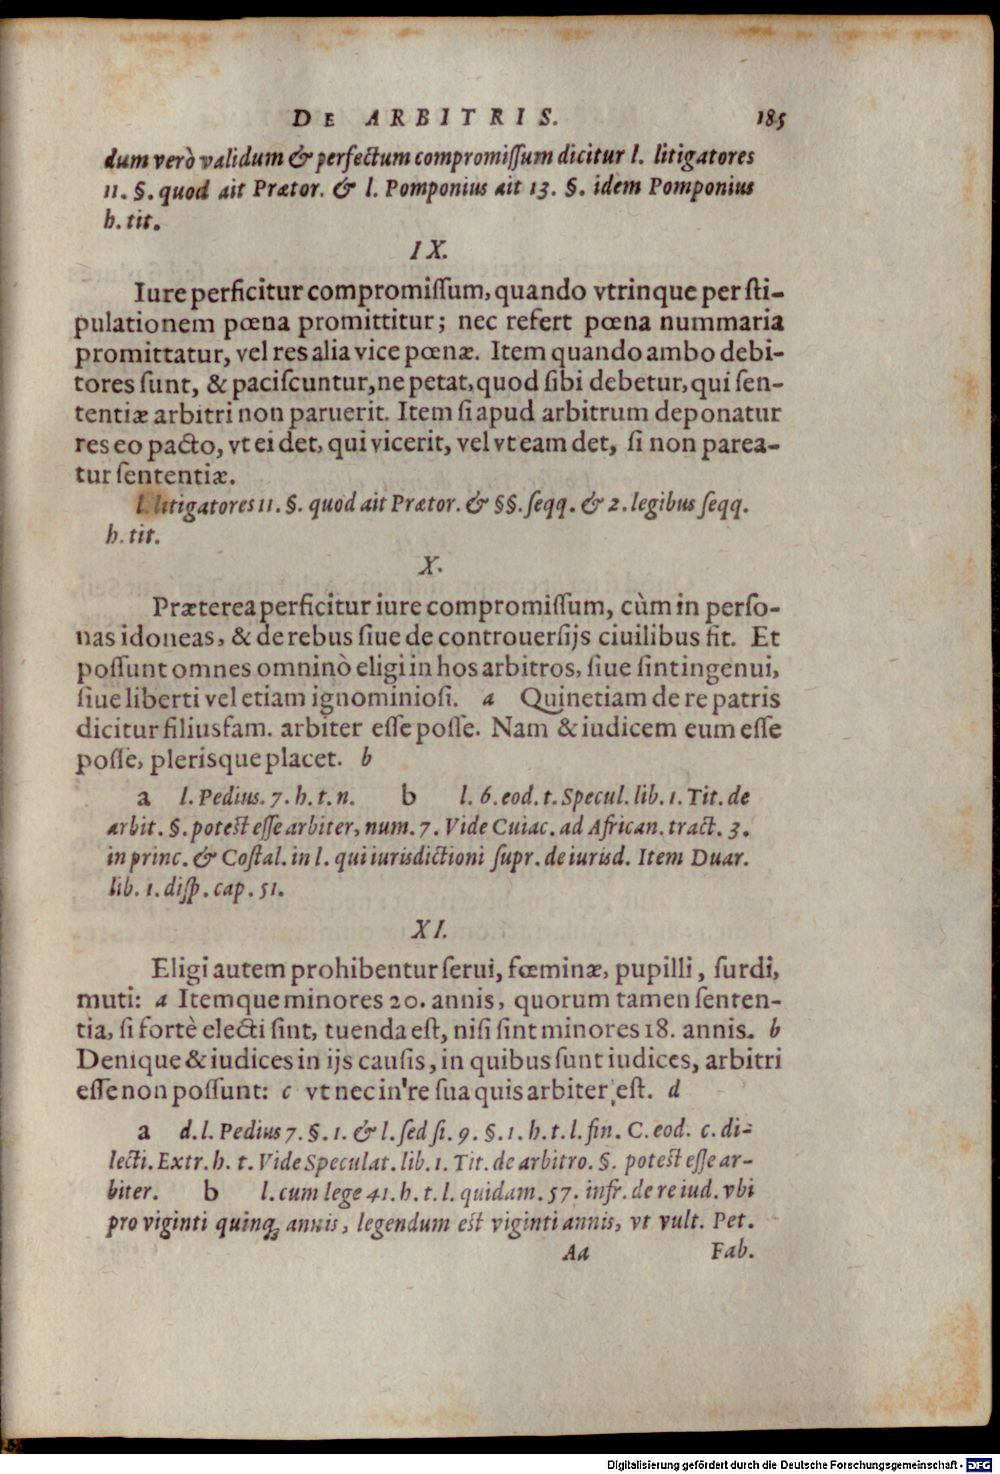 DE ARBITRIS. 185
dum verò validum & perfectum compromissum dicitur l. litigatores
11. §. quod ait Prætor. & l. Pomponius ait 13. §. idem Pomponius
h. tit.
IX.
Iure perficitur compromissum, quando vtrinque per sti-
pulationem pœna promittitur; nec refert pœna nummaria
promittatur, vel res alia vice pœnæ. Item quando ambo debi-
tores sunt, & paciscuntur, ne petat, quod sibi debetur, qui sen-
tentiæ arbitri non paruerit. Item si apud arbitrum deponatur
res eo pacto, vt ei det, qui vicerit, vel vt eam det, si non parea-
tur sententiæ.
l. litigatores 11. §. quod ait Prætor. & §§. seqq. & 2. legibus seqq.
h. tit.
X.
Præterea perficitur iure compromissum, cùm in perso-
nas idoneas, & de rebus siue de controuersijs ciuilibus fit. Et
possunt omnes omninò eligi in hos arbitros, siue sint ingenui,
siue liberti vel etiam ignominiosi. a Quinetiam de re patris
dicitur filiusfam. arbiter esse posse. Nam & iudicem eum esse
posse, plerisque placet. b
a l. Pedius. 7. h. t. n. b l. 6. eod. t. Specul. lib. 1. Tit. de
arbit. §. potest esse arbiter, num. 7. Vide Cuiac. ad African. tract. 3.
in princ. & Costal. in l. qui iurisdictioni supr. de iurisd. Item Duar.
lib. 1. disp. cap. 51.
XI.
Eligi autem prohibentur serui, fœminæ, pupilli, surdi,
muti: a Itemque minores 20. annis, quorum tamen senten-
tia, si fortè electi sint, tuenda est, nisi sint minores 18. annis. b
Denique & iudices in ijs causis, in quibus sunt iudices, arbitri
esse non possunt: c vt nec in re sua quis arbiter est. d
a d. l. Pedius 7. §. 1. & l. sed si. 9. §. 1. h. t. l. fin. C. eod. c. di-
lecti. Extr. h. t. Vide Speculat. lib. 1. Tit. de arbitro. §. potest esse ar-
biter. b l. cum lege 41. h. t. l. quidam. 57. infr. de re iud. vbi
pro viginti quinq; annis, legendum est viginti annis, vt vult. Pet.
Aa Fab.
Digitalisierung gefördert durch die Deutsche Forschungsgemeinschaft - DFG